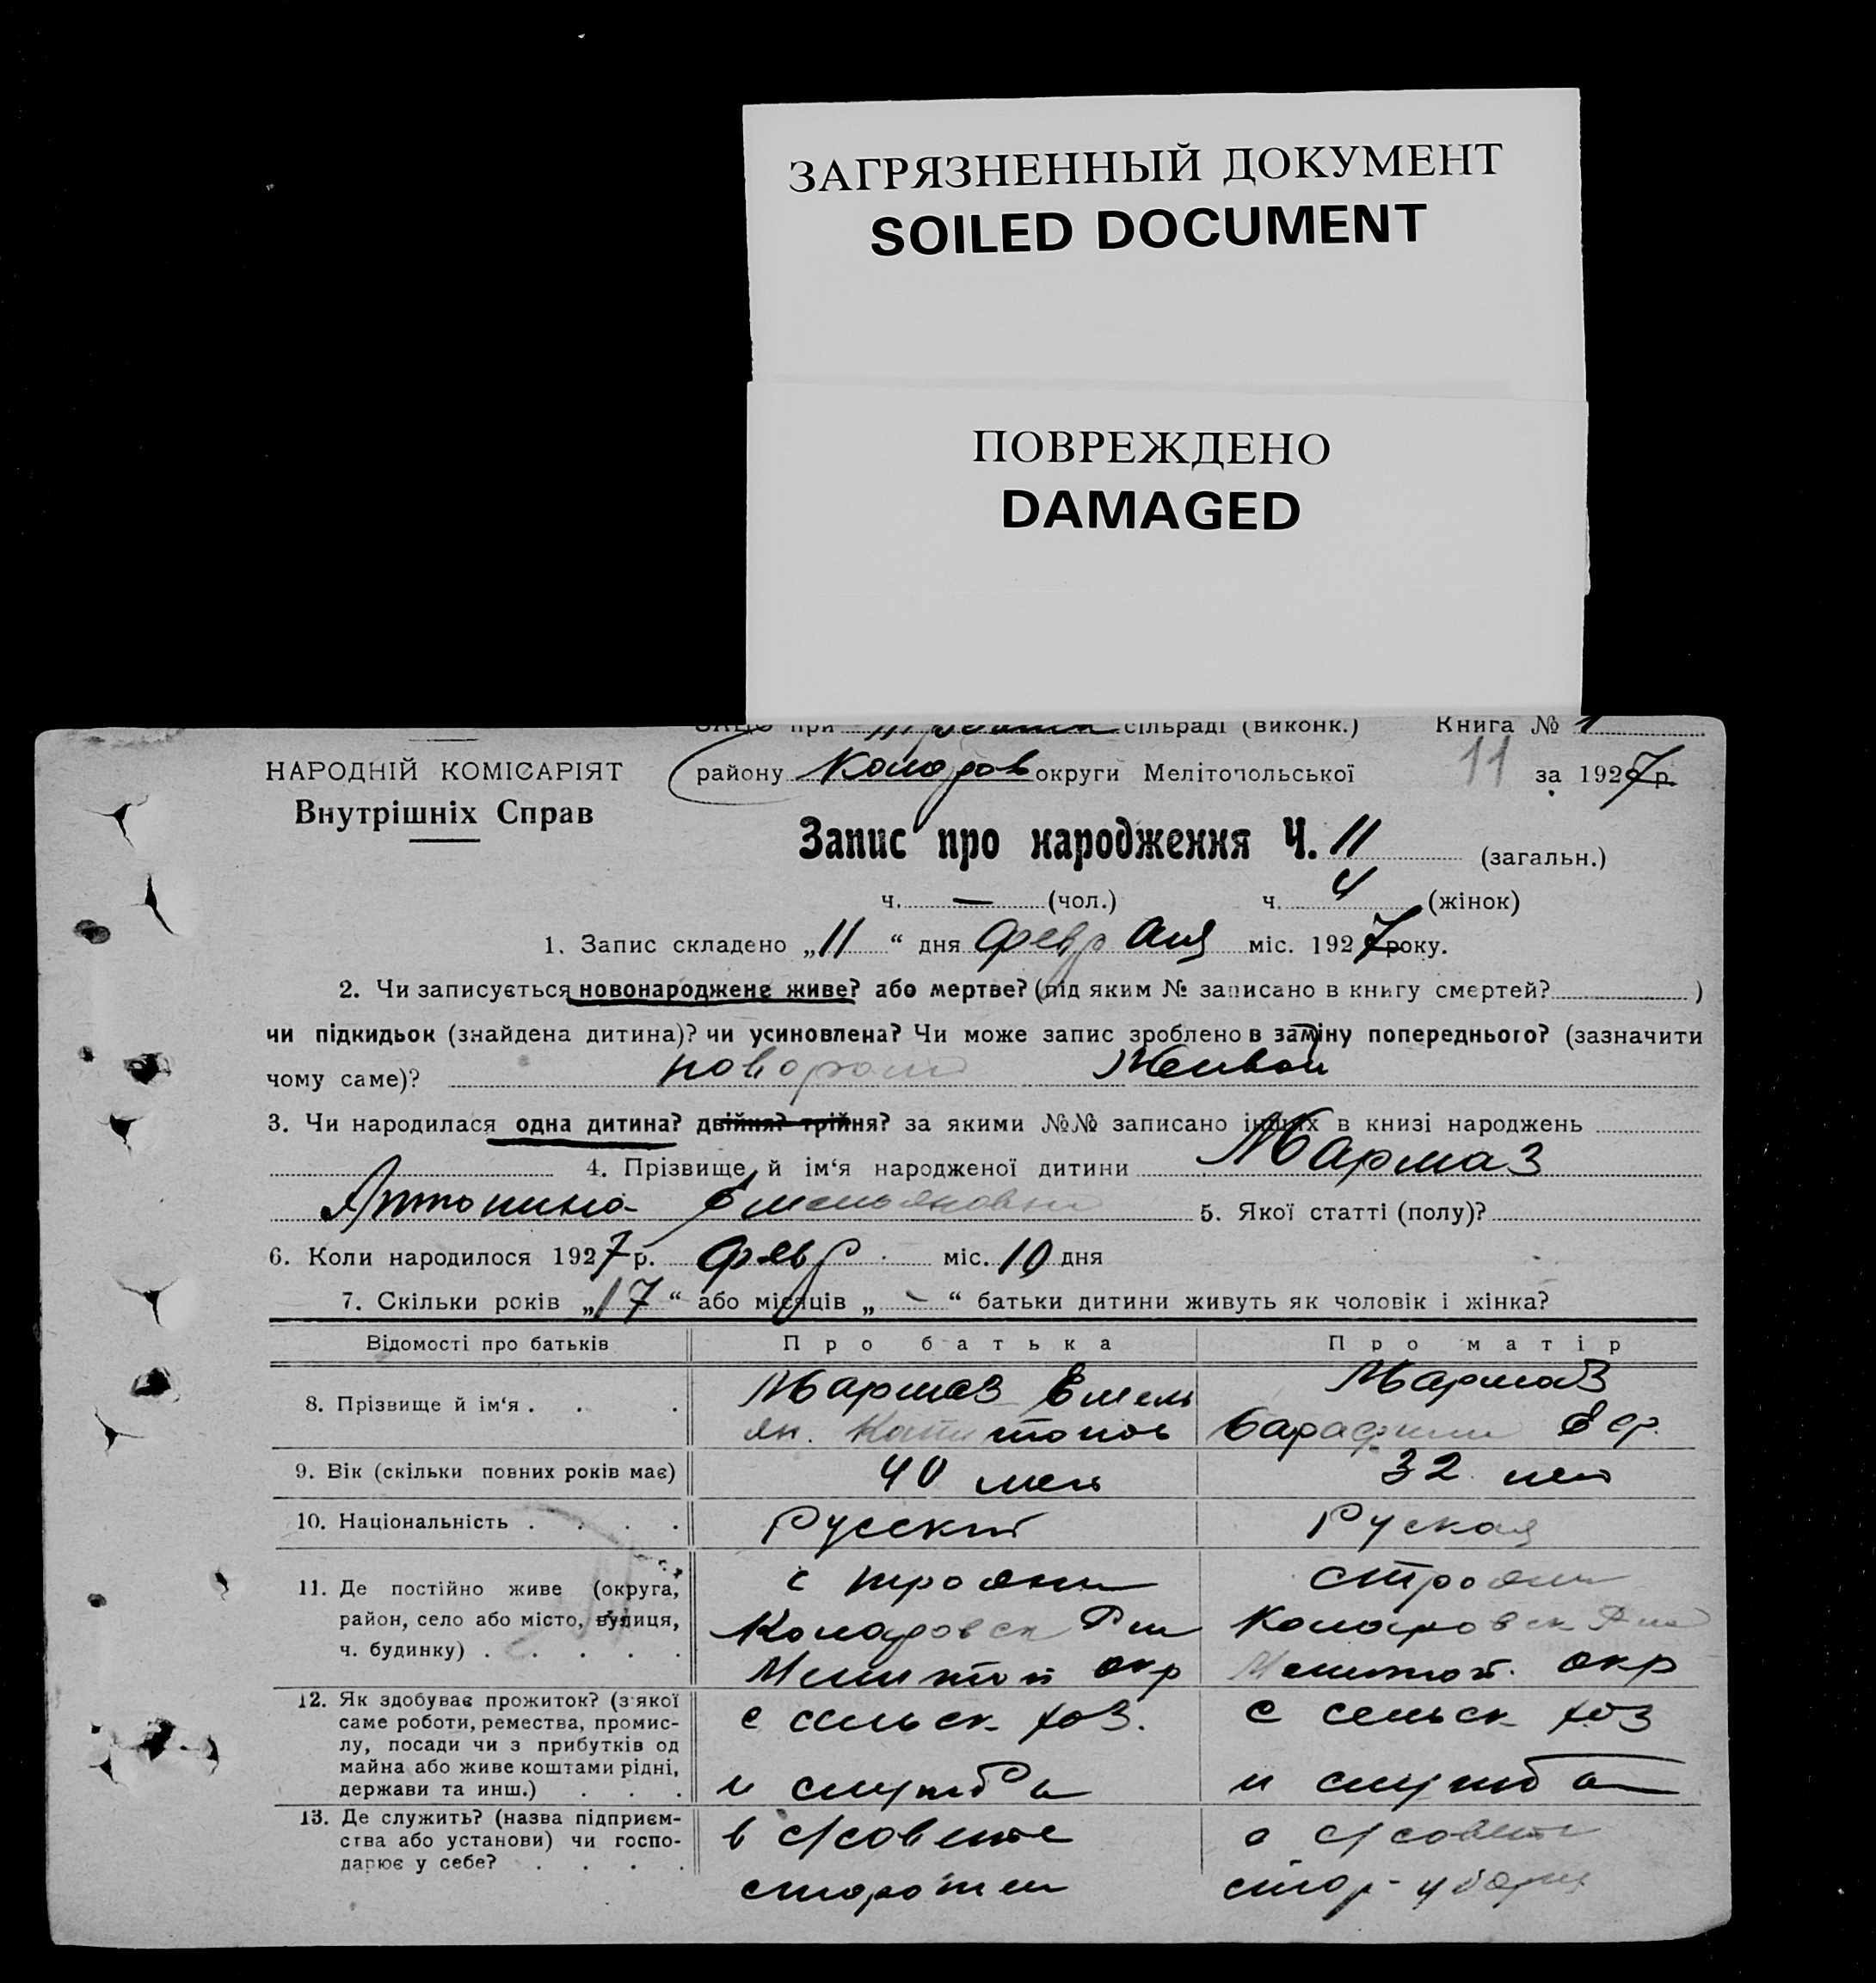 ЗАГРЯЗНЕННЫЙ ДОКУМЕНТ
SOILED DOCUMENT
ПОВРЕЖДЕНО
DAMAGED
ЗАЦС при сільраді (виконк.) Книга № 1
НАРОДНІЙ КОМІСАРІЯТ
Внутрішніх Справ
району округи Мелітопольської 11 за 1927 р.
Запис про народження Ч. 11 (загальн.)
ч. — (чол.) ч. 4 (жінок)
1. Запис складено „11“ дня февраля міс. 1927 року.
2. Чи записується новонароджене живе? або мертве? (під яким № записано в книгу смертей? )
чи підкидьок (знайдена дитина)? чи усиновлена? Чи може запис зроблено в заміну попереднього? (зазначити
чому саме)? новорожд живой
3. Чи народилася одна дитина? двійня? трійня? за якими №№ записано інших в книзі народжень
4. Прізвище й ім‘я народженої дитини Мармаз
Антонина Емельяновна 5. Якої статті (полу)?
6. Коли народилося 1927 р. февр міс. 10 дня
7. Скільки років „17“ або місяців „ - “ батьки дитини живуть як чоловік і жінка?
Відомості про батьків Про батька Про матір
8. Прізвище й ім‘я . . . Мармаз Емель Мармаз
ян. Капитонов Ефр.
9. Вік (скільки повних років має) 40 лет 32 лет
10. Національність . . . . Русский Руская
11. Де постійно живе (округа, с трояни с трояни
район, село або місто, вулиця,
ч. будинку) . . . . . Мелитоп окр Мелитоп. окр
12. Як здобуває прожиток? (з якої с сельск хоз. с сельск хоз
саме роботи, ремества, промис-
лу, посади чи з прибутків од
майна або живе коштами рідні,
держави та инш.) . . . и служба и служба
13. Де служить? (назва підприєм- в с/совете с/совете
ства або установи) чи госпо-
дарює у себе? . . . .
сторожем стор-уборщ